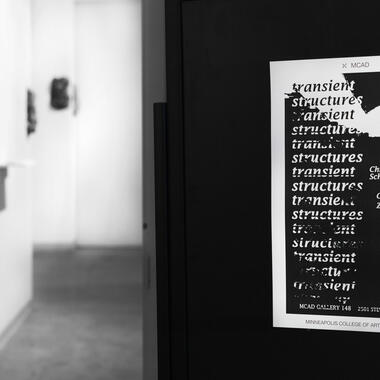 MCAD
transient
structures
transient
structures
transient
structures
transient
structures
transient
structures
transient
structures
transient
transient
MCAD GALLERY 148 2501
MINNEAPOLIS COLLEGE OF